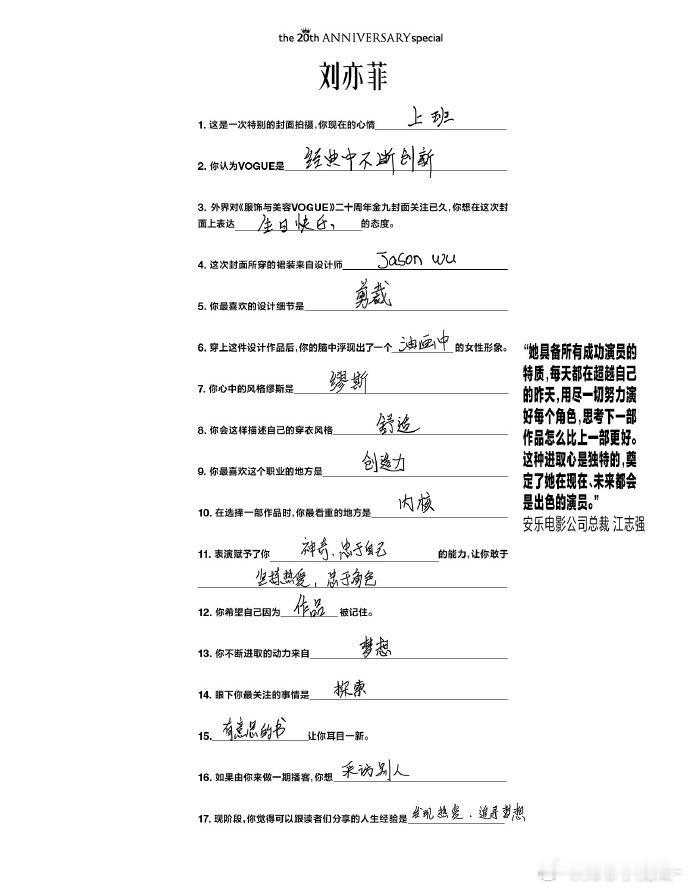 the 20th ANNIVERSARY special
刘亦菲
1. 这是一次特别的封面拍摄,你现在的心情 上班
2. 你认为VOGUE是 经典中不断创新
3. 外界对《服饰与美容VOGUE》二十周年金九封面关注已久,你想在这次封
面上表达 生日快乐、 的态度。
4. 这次封面所穿的裙装来自设计师 Jason Wu
5. 你最喜欢的设计细节是 剪裁
6. 穿上这件设计作品后,你的脑中浮现出了一个 油画中 的女性形象。
7. 你心中的风格缪斯是 缪斯
8. 你会这样描述自己的穿衣风格 舒适
9. 你最喜欢这个职业的地方是 创造力
10. 在选择一部作品时,你最看重的地方是 内核
11. 表演赋予了你 神奇、忠于自己 的能力,让你敢于
坚持热爱,忠于角色
12. 你希望自己因为 作品 被记住。
13. 你不断进取的动力来自 梦想
14. 眼下你最关注的事情是 探索
15. 有意思的书 让你耳目一新。
16. 如果由你来做一期播客,你想 采访别人
17. 现阶段,你觉得可以跟读者们分享的人生经验是 发现热爱、追寻梦想
“她具备所有成功演员的
特质,每天都在超越自己
的昨天,用尽一切努力演
好每个角色,思考下一部
作品怎么比上一部更好。
这种进取心是独特的,奠
定了她在现在、未来都会
是出色的演员。”
安乐电影公司总裁 江志强